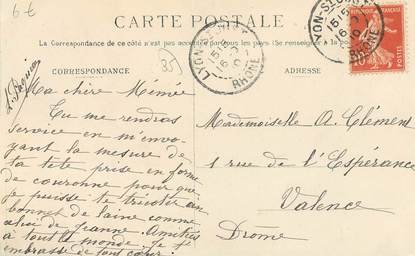 6€
CARTE POSTALE
La Correspondance de ce côté n'est pas acceptée par tous les pays. (Se renseigner à la poste)
CORRESPONDANCE
ADRESSE
35
LYON
RHONE
LYON
RHONE
10
POSTES
Ma chère Mémée
Tu me rendras
service en m'envo-
yant la mesure de
ta tête prise en forme
de couronne pour que
je puisse te tricoter un
bonnet de laine comme
celui de Jeanne. Amitiés
à tout le monde. Je t'
embrasse de tout cœur.
Mademoiselle A. Clément
1 rue de l'Espérance
Valence
Drome